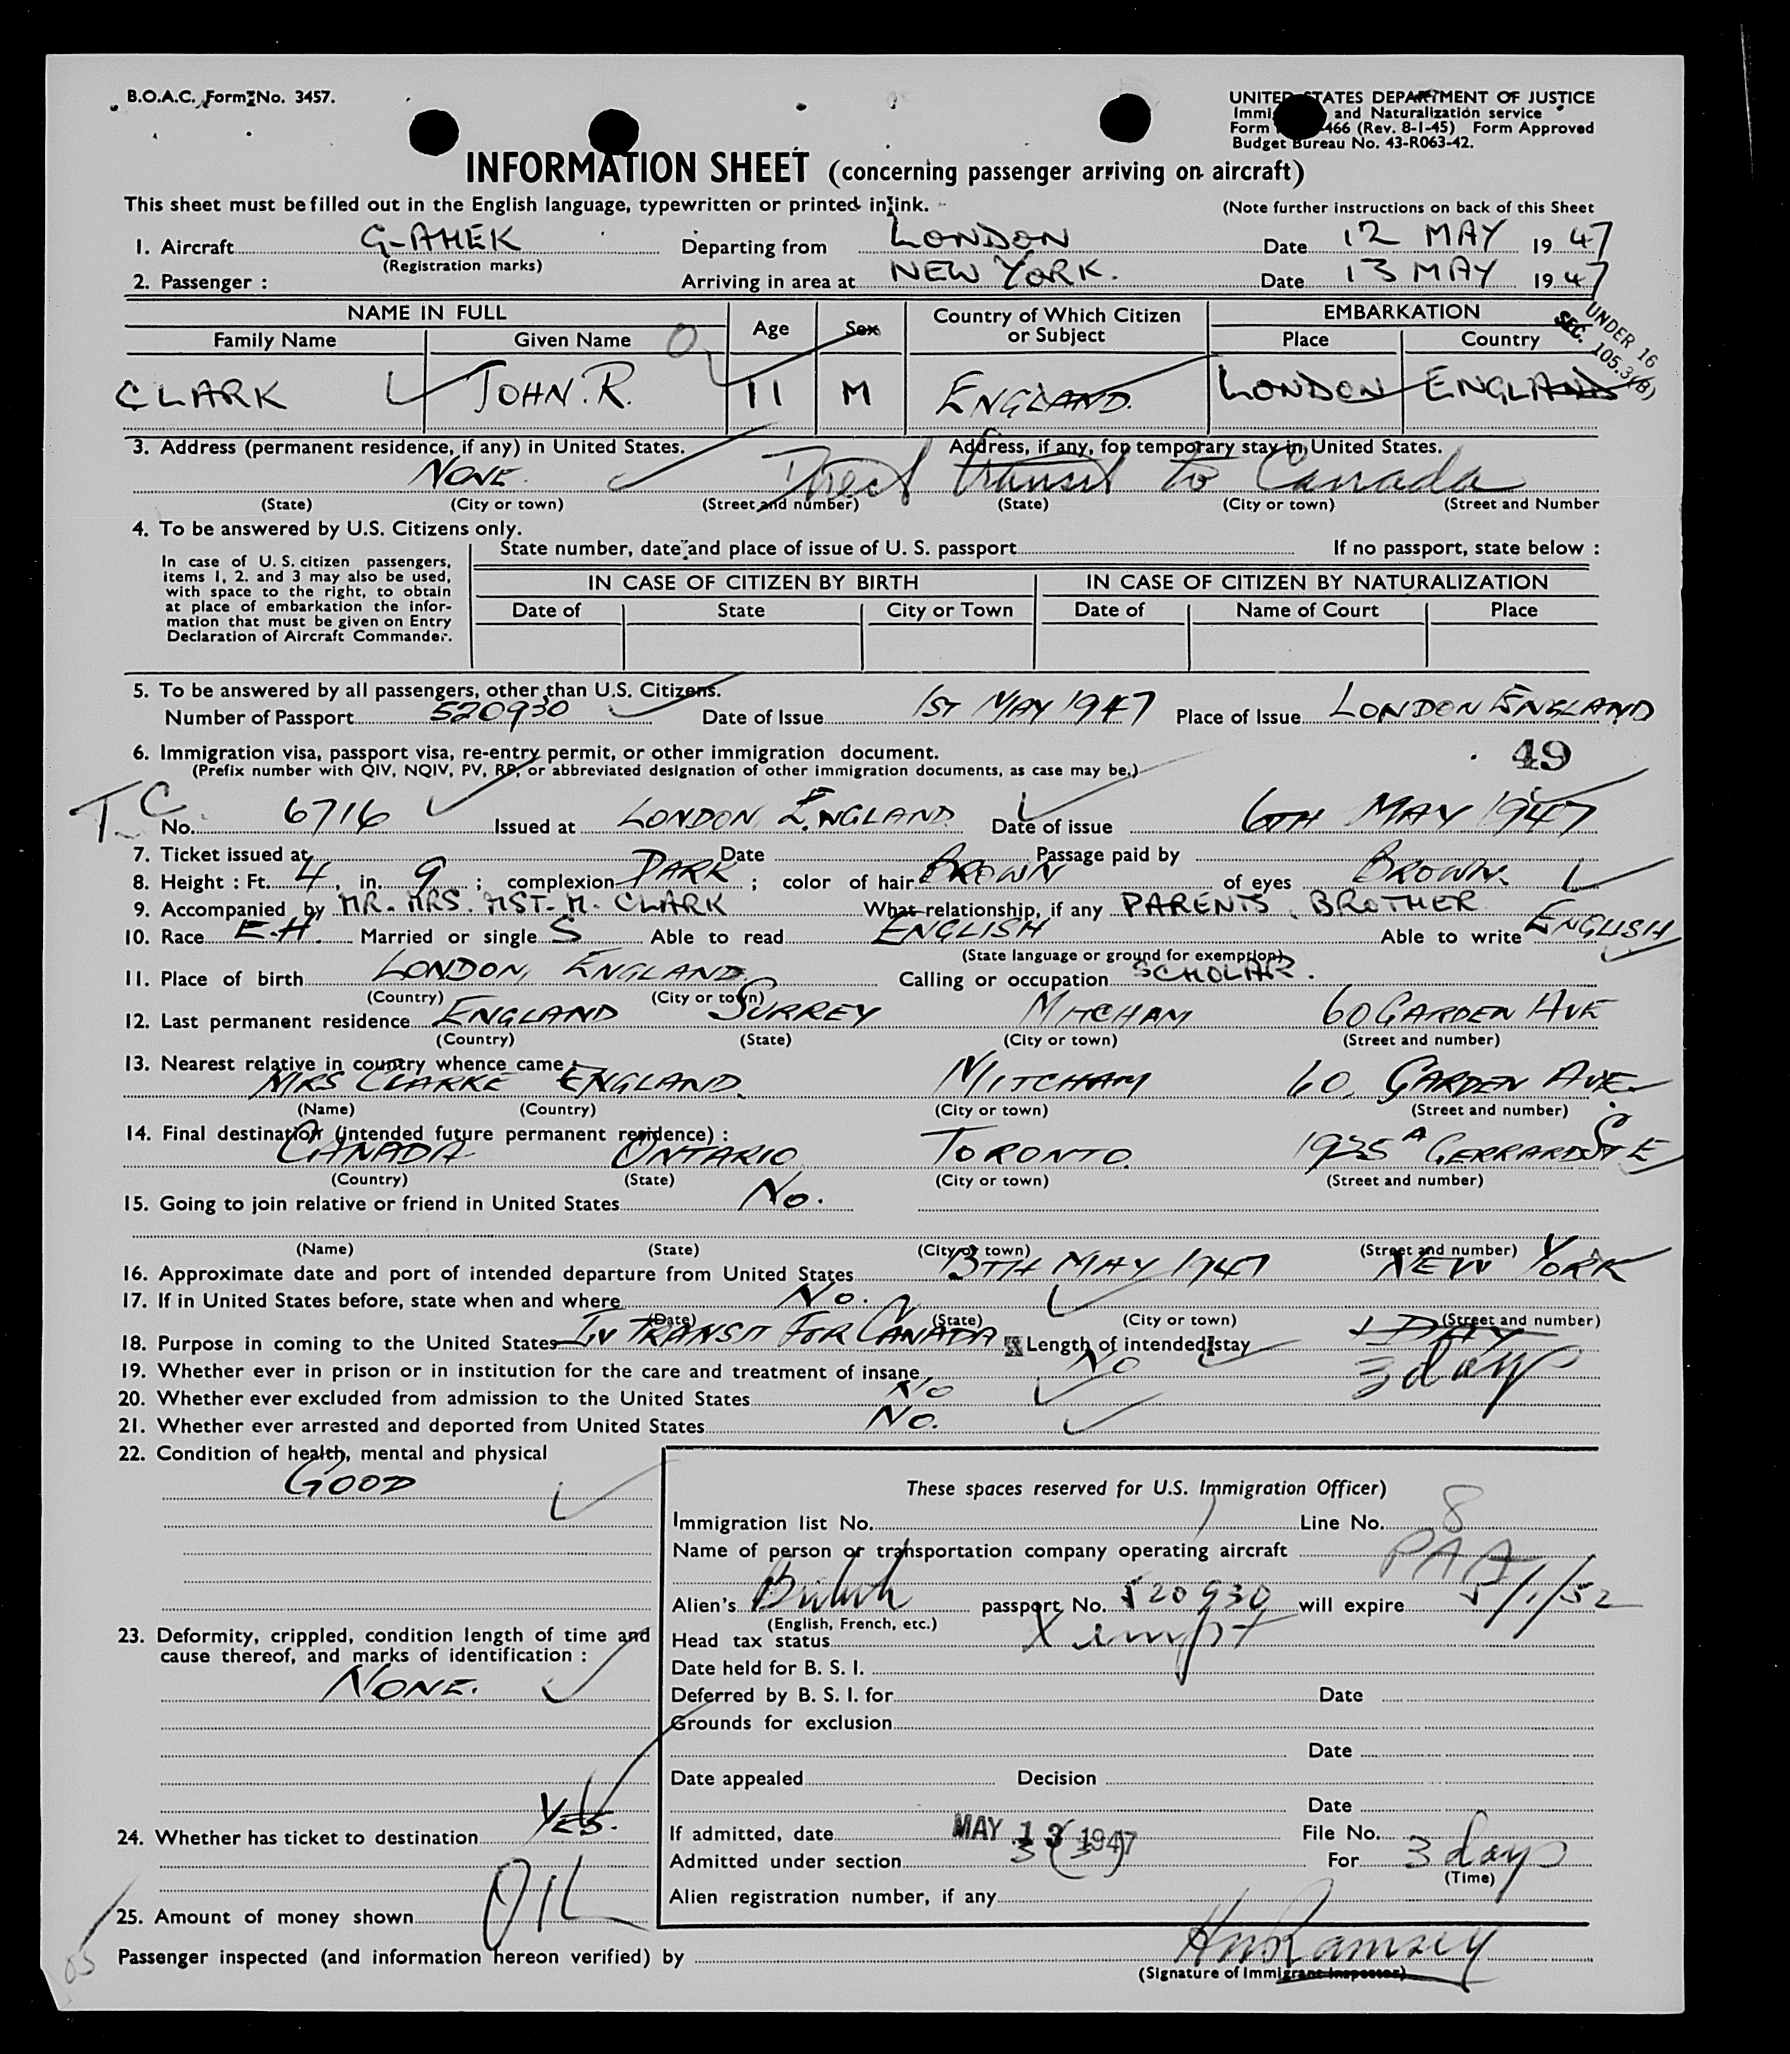 B.O.A.C. Form No. 3457.
UNITED STATES DEPARTMENT OF JUSTICE
Immi and Naturalization service
Form 466 (Rev. 8-1-45) Form Approved
Budget Bureau No. 43-R063-42.
INFORMATION SHEET (concerning passenger arriving on aircraft)
This sheet must be filled out in the English language, typewritten or printed in ink.
(Note further instructions on back of this Sheet
1. Aircraft G-AHEK Departing from LONDON Date 12 MAY 1947
(Registration marks)
2. Passenger : Arriving in area at NEW YORK. Date 13 MAY 1947
NAME IN FULL Age Sex Country of Which Citizen or Subject EMBARKATION
Family Name Given Name Place Country
UNDER 16
SEC. 105.3(B)
CLARK JOHN. R. 11 M ENGLAND. LONDON ENGLAND
3. Address (permanent residence, if any) in United States. Address, if any, for temporary stay in United States.
NONE. Direct transit to Canada
(State) (City or town) (Street and number) (State) (City or town) (Street and Number
4. To be answered by U.S. Citizens only.
In case of U.S. citizen passengers,
items 1, 2. and 3 may also be used,
with space to the right, to obtain
at place of embarkation the infor-
mation that must be given on Entry
Declaration of Aircraft Commander.
State number, date and place of issue of U. S. passport If no passport, state below :
IN CASE OF CITIZEN BY BIRTH IN CASE OF CITIZEN BY NATURALIZATION
Date of State City or Town Date of Name of Court Place
5. To be answered by all passengers, other than U.S. Citizens.
Number of Passport 520930 Date of Issue 1ST MAY 1947 Place of Issue LONDON ENGLAND
6. Immigration visa, passport visa, re-entry permit, or other immigration document.
49
(Prefix number with QIV, NQIV, PV, RP, or abbreviated designation of other immigration documents, as case may be.)
T.C. No. 6716 Issued at LONDON, ENGLAND Date of issue 6TH MAY 1947
7. Ticket issued at Date Passage paid by
8. Height : Ft. 4, in. 9 ; complexion DARK ; color of hair BROWN of eyes BROWN.
9. Accompanied by MR. MRS. MST. M. CLARK What relationship, if any PARENTS, BROTHER
10. Race E.H. Married or single S Able to read ENGLISH Able to write ENGLISH
(State language or ground for exemption)
11. Place of birth LONDON, ENGLAND. Calling or occupation SCHOLAR.
(Country) (City or town)
12. Last permanent residence ENGLAND SURREY MITCHAM 60 GARDEN AVE
(Country) (State) (City or town) (Street and number)
13. Nearest relative in country whence came
MRS CLARKE ENGLAND. MITCHAM 60, GARDEN AVE.
(Name) (Country) (City or town) (Street and number)
14. Final destination (intended future permanent residence) :
CANADA ONTARIO TORONTO. 1935A GERRARD ST E
(Country) (State) (City or town) (Street and number)
15. Going to join relative or friend in United States No.
(Name) (State) (City or town) (Street and number)
16. Approximate date and port of intended departure from United States 13TH MAY 1947 NEW YORK
17. If in United States before, state when and where No.
(Date) (State) (City or town) (Street and number)
18. Purpose in coming to the United States IN TRANSIT FOR CANADA Length of intended stay 1 DAY
3 days
19. Whether ever in prison or in institution for the care and treatment of insane No
20. Whether ever excluded from admission to the United States No
21. Whether ever arrested and deported from United States No.
22. Condition of health, mental and physical
GOOD
These spaces reserved for U.S. Immigration Officer)
Immigration list No. 1 Line No. 8
Name of person or transportation company operating aircraft PAA
Alien's British passport, No. 520930 will expire 5/1/52
(English, French, etc.)
23. Deformity, crippled, condition length of time and
cause thereof, and marks of identification :
NONE.
Head tax status Xempt
Date held for B. S. I.
Deferred by B. S. I. for Date
Grounds for exclusion
Date
Date appealed Decision
Date
24. Whether has ticket to destination YES.
If admitted, date MAY 13 1947 File No.
Admitted under section 3(3) For 3 days
(Time)
Alien registration number, if any
25. Amount of money shown
Passenger inspected (and information hereon verified) by Ramsey
(Signature of Immigrant Inspector)